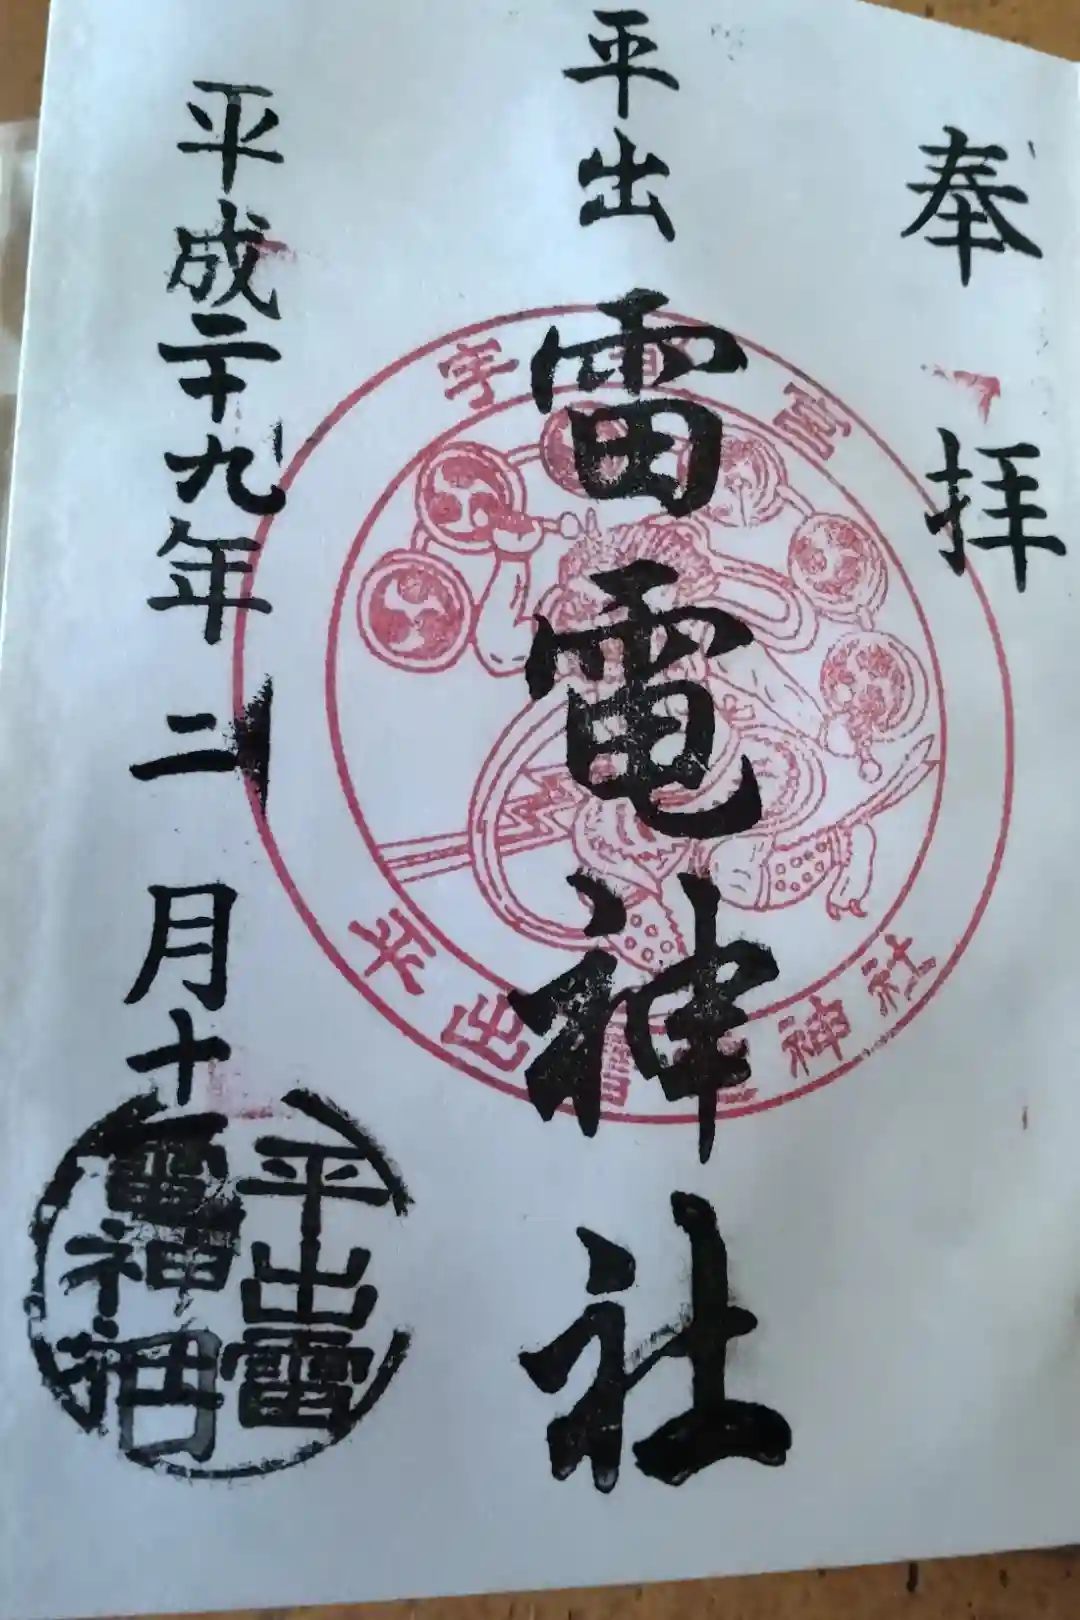 奉拝
平出雷電神社
平成二十九年二月十
宇都宮
平出雷電神社
平出雷
電神